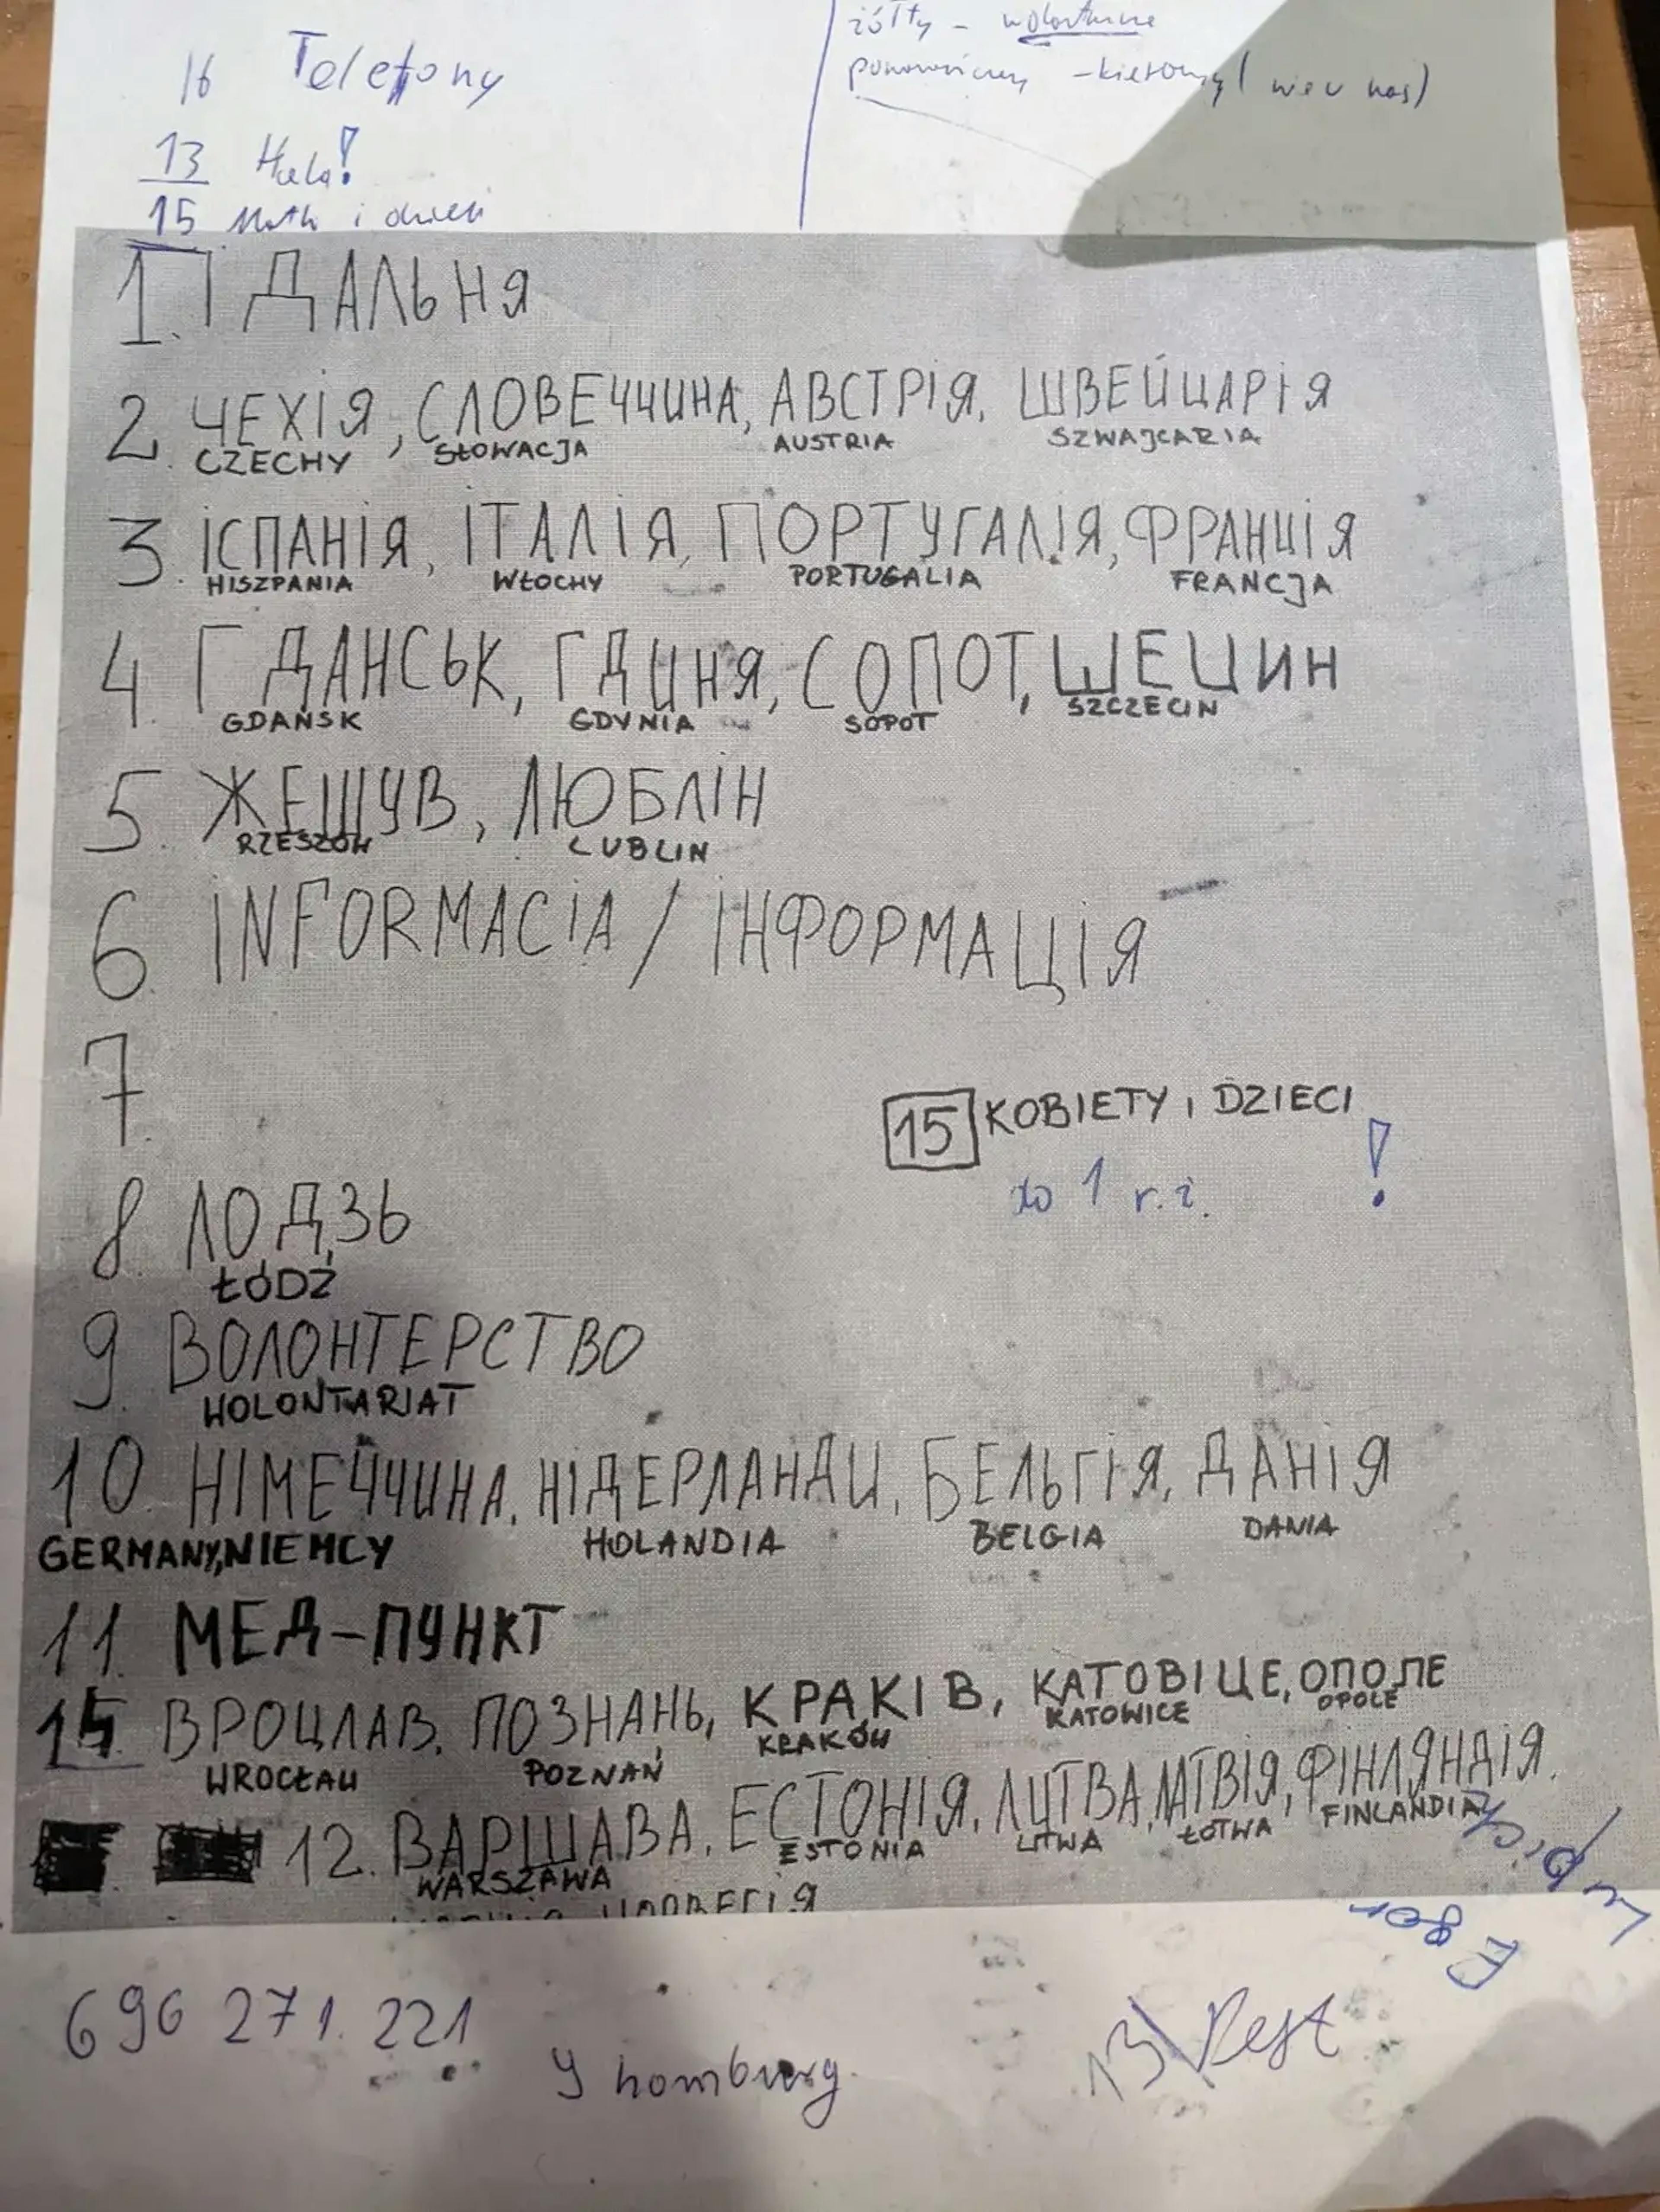 żółty -
pomarańczowy - kierowcy (nie u nas)
16 Telefony
13 Hala!
15 Matki i dzieci
1. ЇДАЛЬНЯ
2. ЧЕХІЯ, СЛОВЕЧЧИНА, АВСТРІЯ, ШВЕЙЦАРІЯ
CZECHY SŁOWACJA AUSTRIA SZWAJCARIA
3. ІСПАНІЯ, ІТАЛІЯ, ПОРТУГАЛІЯ, ФРАНЦІЯ
HISZPANIA WŁOCHY PORTUGALIA FRANCJA
4. ГДАНСЬК, ГДИНЯ, СОПОТ, ШЕЦИН
GDAŃSK GDYNIA SOPOT SZCZECIN
5. ЖЕШУВ, ЛЮБЛІН
RZESZÓW LUBLIN
6. INFORMACIA / ІНФОРМАЦІЯ
7.
15 KOBIETY I DZIECI
do 1 r.ż. !
8. ЛОДЗЬ
ŁÓDŹ
9. ВОЛОНТЕРСТВО
WOLONTARIAT
10. НІМЕЧЧИНА, НІДЕРЛАНДИ, БЕЛЬГІЯ, ДАНІЯ
GERMANY, NIEMCY HOLANDIA BELGIA DANIA
11. МЕД-ПУНКТ
ВРОЦЛАВ, ПОЗНАНЬ, КРАКІВ, КАТОВІЦЕ, ОПОЛЕ
WROCŁAW POZNAŃ KRAKÓW KATOWICE OPOLE
12. ВАРШАВА, ЕСТОНІЯ, ЛИТВА, ЛАТВІЯ, ФІНЛЯНДІЯ.
WARSZAWA ESTONIA LITWA ŁOTWA FINLANDIA
НОРВЕГІЯ
Egor
696 271. 221
homburg
13 Rest